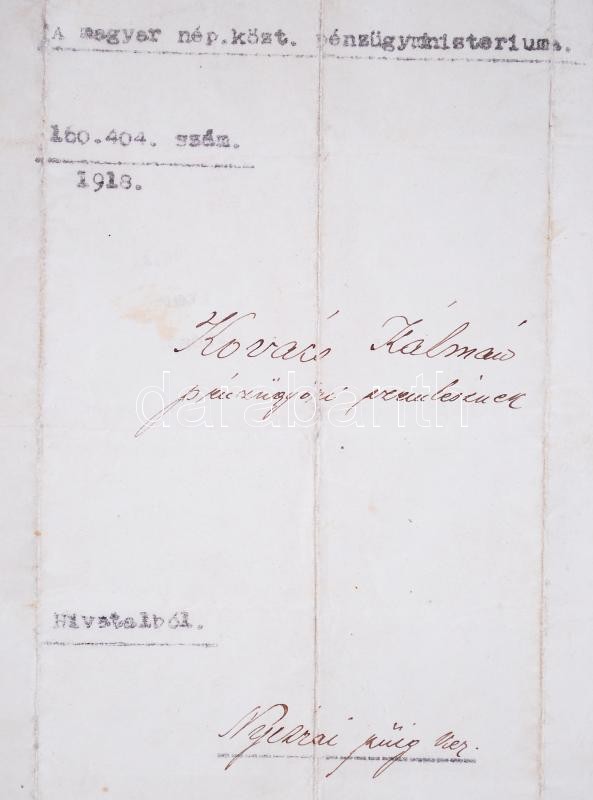 A magyar nép.közt. pénzügyministeriuma.
160.404. szám.
1918.
Kovács Kálmán
pénzügyőri szemlésznek
darabanth
Hivatalból.
Nyitrai püig ker.